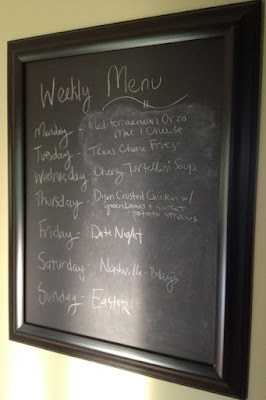 Weekly Menu
Monday - Mediterranean Orzo
Mac & Cheese
Tuesday - Texas Cheese Fries
Wednesday - Cheesy Tortellini Soup
Thursday - Crusted Chicken w/
green beans + sweet
potato straws
Friday - Date Night
Saturday - Nashville -
Sunday - Easter